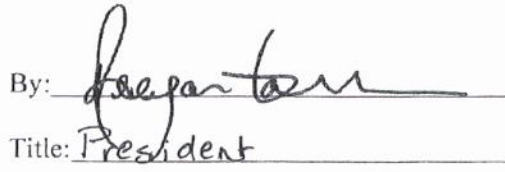 By:
Title: President